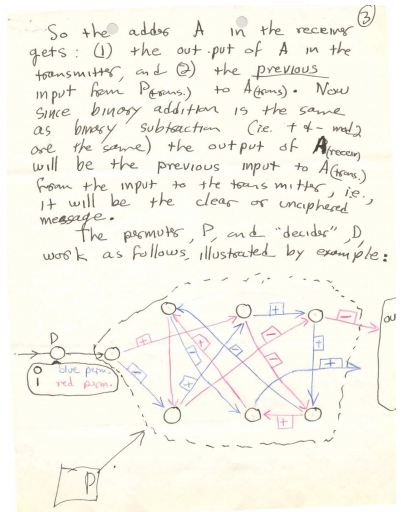 3
So the adder A in the receiver
gets: (1) the out-put of A in the
transmitter, and (2) the previous
input from P(trans.) to A(trans). Now
since binary addition is the same
as binary subtraction (i.e. + & - mod 2
are the same) the output of A(receiv
will be the previous input to A(trans.)
from the input to the transmitter, i.e.,
it will be the clear or unciphered
message.
The permuter, P, and "decider", D,
work as follows, illustrated by example:
D
0 blue perm.
1 red perm.
+ - + - + - + - + - + +
P